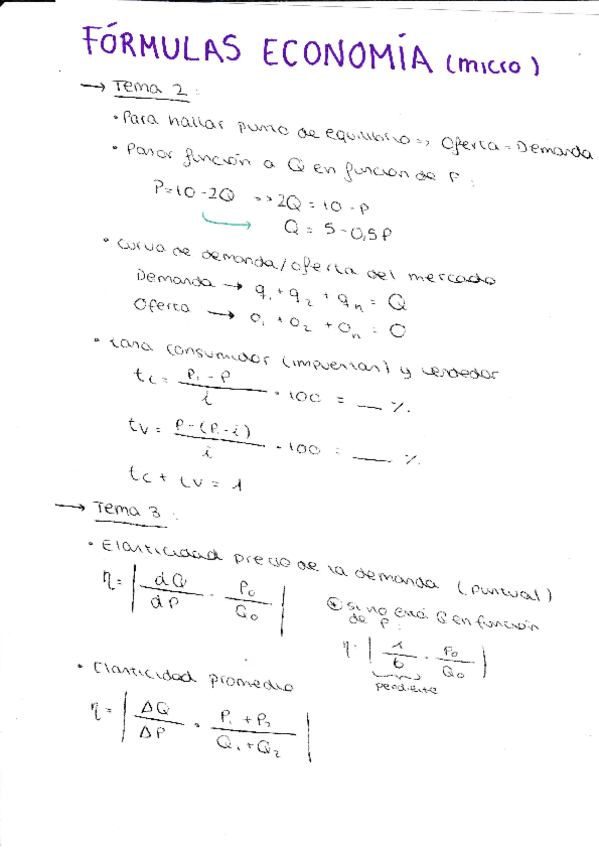 FÓRMULAS ECONOMÍA (micro)
→ Tema 2:
• Para hallar punto de equilibrio => Oferta = Demanda
• Pasar función a Q en función de P:
P=10-2Q => 2Q = 10-P
Q = 5-0,5P
• Curva de demanda/oferta del mercado
Demanda → q₁+q₂+qₙ = Q
Oferta → O₁+O₂+Oₙ = O
• tasa consumidor (impuestos) y vendedor
tc = (P₁-P)/i · 100 = __ %
tv = (P-(P₁-i))/i · 100 = __ %
tc + tv = 1
→ Tema 3:
• Elasticidad precio de la demanda (puntual)
η = |dQ/dP · P₀/Q₀|
* si no está Q en función
de P:
η = |1/b · P₀/Q₀|
pendiente
• Elasticidad promedio
η = |ΔQ/ΔP · (P₁+P₂)/(Q₁+Q₂)|